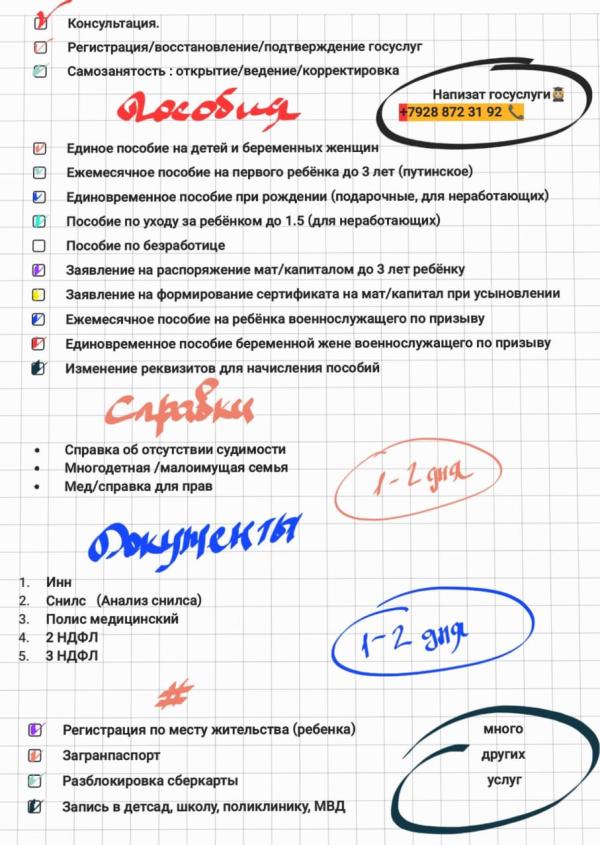 Консультация.
Регистрация/восстановление/подтверждение госуслуг
Самозанятость : открытие/ведение/корректировка
Напизат госуслуги
+7928 872 31 92
Пособия
Единое пособие на детей и беременных женщин
Ежемесячное пособие на первого ребёнка до 3 лет (путинское)
Единовременное пособие при рождении (подарочные, для неработающих)
Пособие по уходу за ребёнком до 1.5 (для неработающих)
Пособие по безработице
Заявление на распоряжение мат/капиталом до 3 лет ребёнку
Заявление на формирование сертификата на мат/капитал при усыновлении
Ежемесячное пособие на ребёнка военнослужащего по призыву
Единовременное пособие беременной жене военнослужащего по призыву
Изменение реквизитов для начисления пособий
Справки
• Справка об отсутствии судимости
• Многодетная /малоимущая семья
• Мед/справка для прав
1-2 дня
Документы
1. Инн
2. Снилс (Анализ снилса)
3. Полис медицинский
4. 2 НДФЛ
5. 3 НДФЛ
1-2 дня
#
Регистрация по месту жительства (ребенка)
Загранпаспорт
Разблокировка сберкарты
Запись в детсад, школу, поликлинику, МВД
много
других
услуг